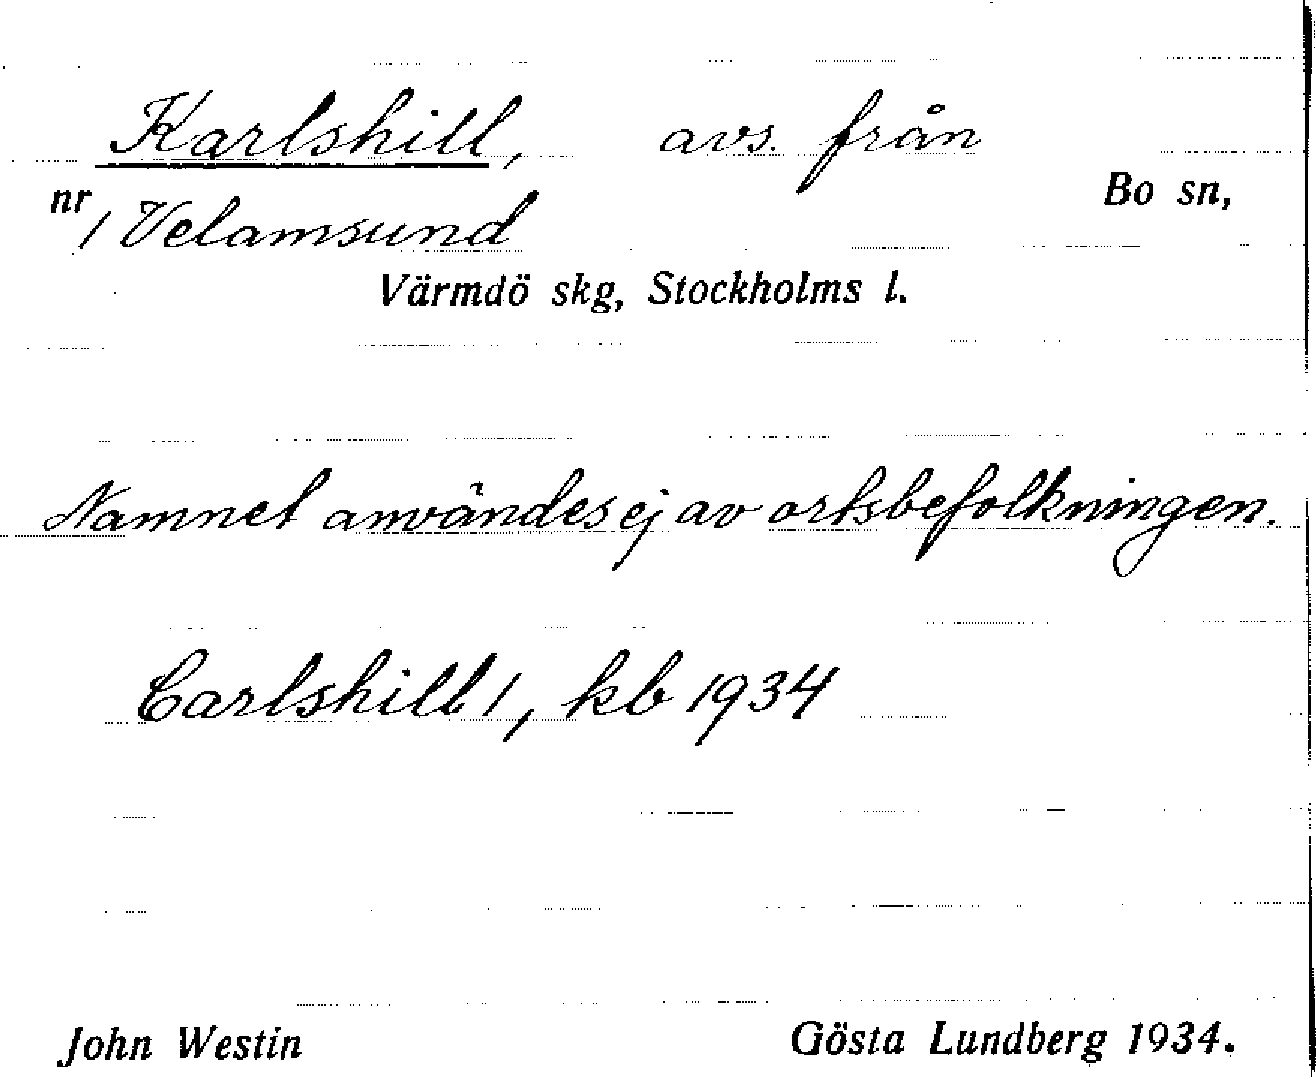 Karlshill, avs. från
Bo sn,
nr 1 Velamsund
Värmdö skg, Stockholms l.
Namnet användes ej av ortsbefolkningen.
Carlshill 1, kb 1934
John Westin Gösta Lundberg 1934.